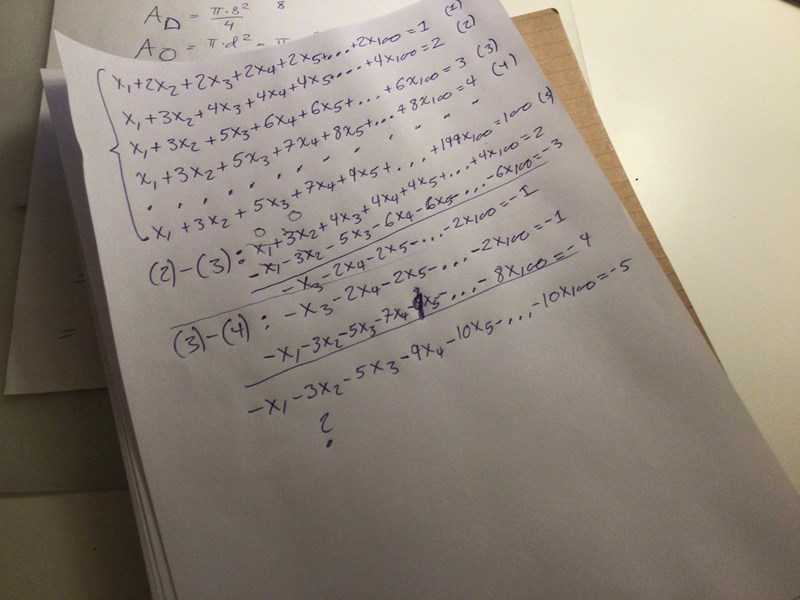 A_D = π·8²/4 8
A_O = π·d² - π
x₁+2x₂+2x₃+2x₄+2x₅+...+2x₁₀₀=1 (1)
x₁+3x₂+4x₃+4x₄+4x₅+...+4x₁₀₀=2 (2)
x₁+3x₂+5x₃+6x₄+6x₅+...+6x₁₀₀=3 (3)
x₁+3x₂+5x₃+7x₄+8x₅+...+8x₁₀₀=4 (4)
x₁+3x₂+5x₃+7x₄+9x₅+...+199x₁₀₀=100 (5)
0 0
(2)-(3): x₁+3x₂+4x₃+4x₄+4x₅+...+4x₁₀₀=2
-x₁-3x₂-5x₃-6x₄-6x₅-...-6x₁₀₀=-3
-x₃-2x₄-2x₅-...-2x₁₀₀=-1
(3)-(4): -x₃-2x₄-2x₅-...-2x₁₀₀=-1
-x₁-3x₂-5x₃-7x₄-8x₅-...-8x₁₀₀=-4
-x₁-3x₂-5x₃-9x₄-10x₅-...-10x₁₀₀=-5
?